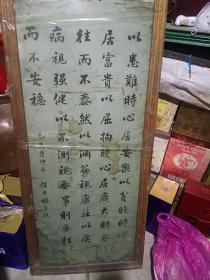 以患難時心居安樂以貧賤時心
居富貴以屈拘時心居廣大則無
往而不泰然以淵谷視康莊以疾
病視强健以不測視無事則無往
而不安穩